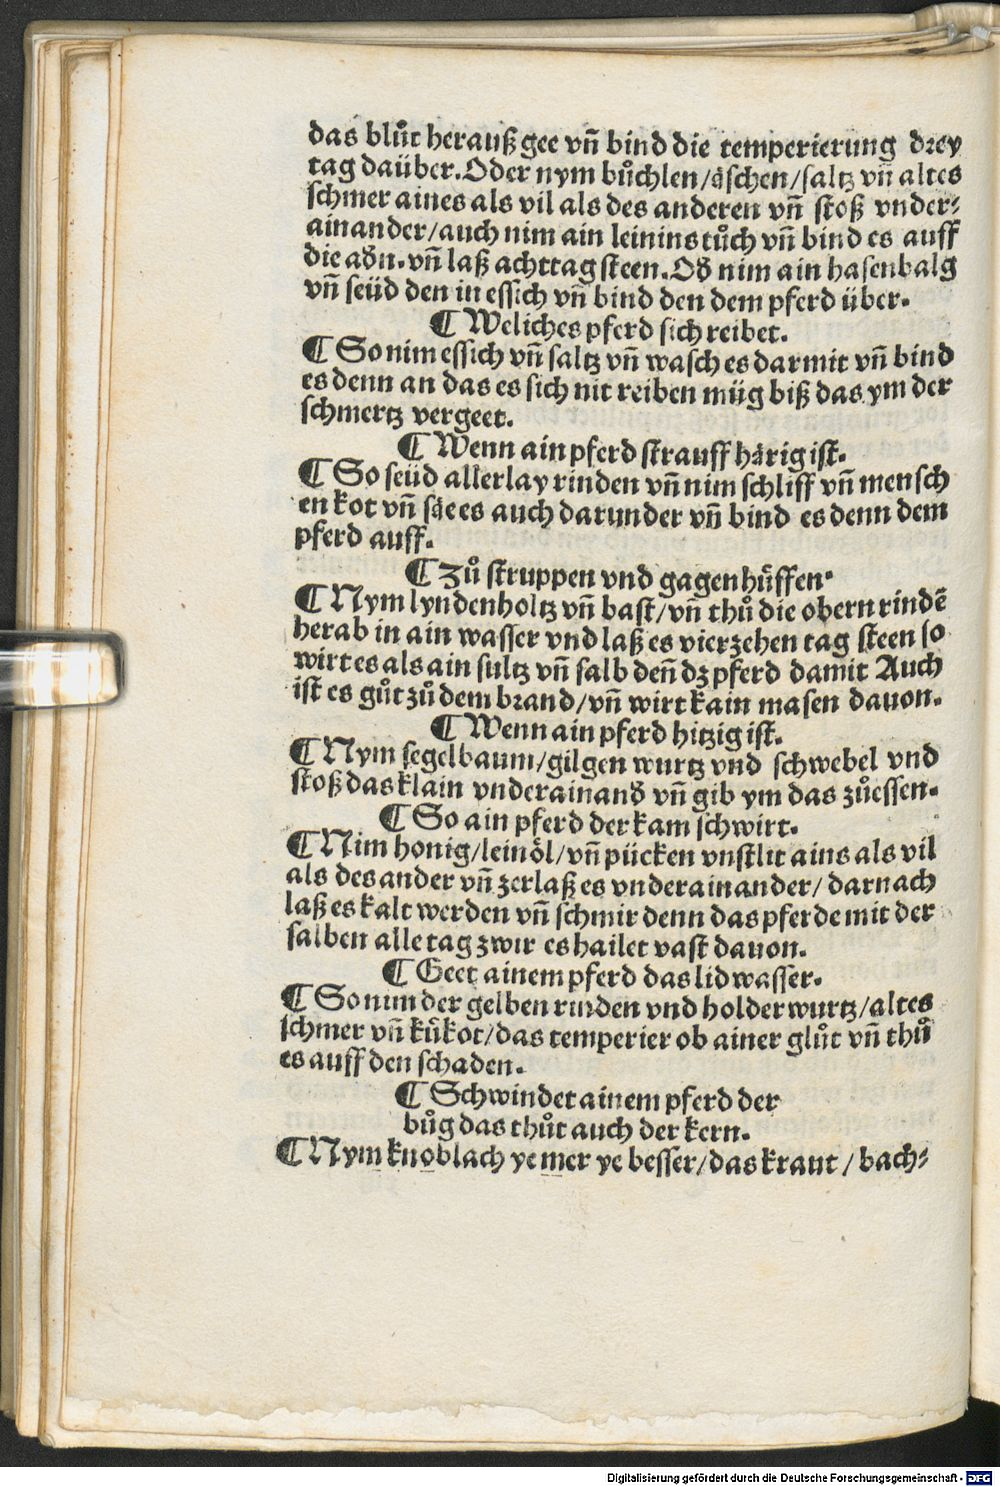 das blůt herauß gee vñ bind die temperierung drey
tag daüber. Oder nym bůchlen/äschen/saltz vñ altes
schmer aines als vil als des anderen vñ stoß vnder⸗
ainander/auch nim ain leinins tůch vñ bind es auff
die adn. vñ laß acht tag steen. Od nim ain hasenbalg
vñ seüd den in essich vñ bind den dem pferd über.
¶ Weliches pferd sich reibet.
¶ So nim essich vñ saltz vñ wasch es darmit vñ bind
es denn an das es sich nit reiben müg biß das ym der
schmertz vergeet.
¶ Wenn ain pferd strauff härig ist.
¶ So seüd allerlay rinden vñ nim schliff vñ mensch
en kot vñ säe es auch darunder vñ bind es denn dem
pferd auff.
¶ Zů struppen vnd gagenhüffen.
¶ Nym lyndenholtz vñ bast/vñ thů die obern rindē
herab in ain wasser vnd laß es vierzehen tag steen so
wirt es als ain sultz vñ salb deñ dz pferd damit Auch
ist es gůt zů dem brand/vñ wirt kain masen dauon.
¶ Wenn ain pferd hitzig ist.
¶ Nym segelbaum/gilgen wurtz vnd schwebel vnd
stoß das klain vnderainand vñ gib ym das zůessen.
¶ So ain pferd der kam schwirt.
¶ Nim honig/leinöl/vñ pücken vnstlit ains als vil
als des ander vñ zerlaß es vnderainander/darnach
laß es kalt werden vñ schmir denn das pferde mit der
salben alle tag zwir es hailet vast dauon.
¶ Geet ainem pferd das lidwasser.
¶ So nim der gelben rinden vnd holder wurtz/altes
schmer vñ kükot/das temperier ob ainer glůt vñ thů
es auff den schaden.
¶ Schwindet ainem pferd der
bůg das thůt auch der kern.
¶ Nym knoblach ye mer ye besser/das kraut/bach⸗
Digitalisierung gefördert durch die Deutsche Forschungsgemeinschaft - DFG